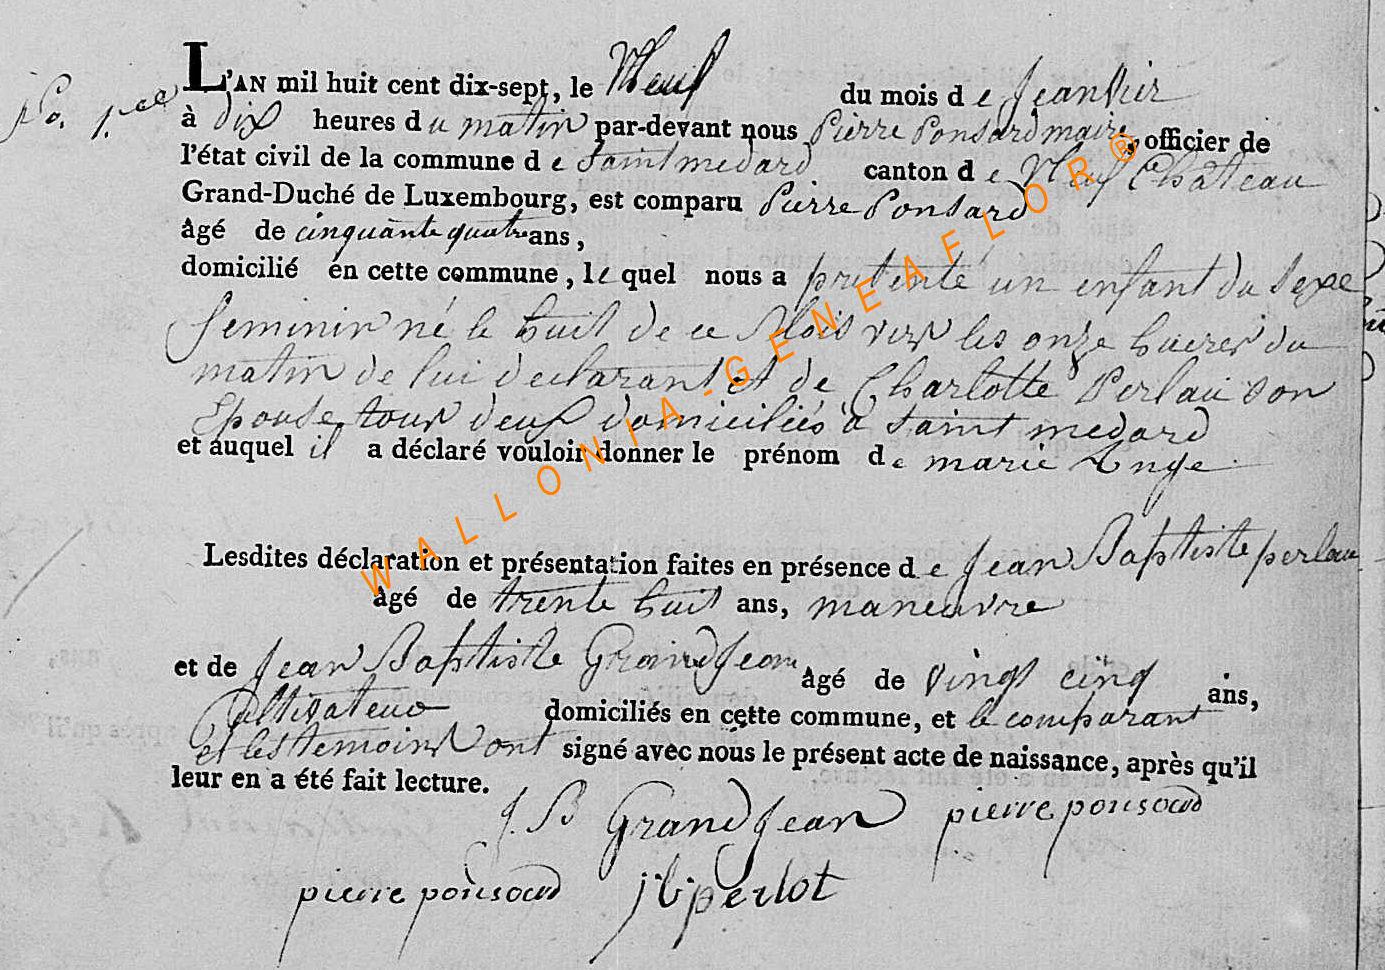 L'AN mil huit cent dix-sept, le Neuf du mois de Jeanvier
No. 1.ee
à dix heures du matin par-devant nous Pierre Ponsard maire, officier de
l'état civil de la commune de Saint medard canton de Neuf Château
Grand-Duché de Luxembourg, est comparu Pierre Ponsard
âgé de cinquante quatre ans,
domicilié en cette commune, le quel nous a présenté un enfant du Sexe
feminin né le huit de ce Mois vers les onze heures du
matin de lui declarant et de Charlotte Perlau son
Epouse tous deux domiciliés à Saint medard
et auquel il a déclaré vouloir donner le prénom de marie Ange
Lesdites déclaration et présentation faites en présence de Jean Baptiste perlau
âgé de trente huit ans, maneuvre
et de Jean Baptiste Grandjean âgé de vingt cinq ans,
Cultivateur domiciliés en cette commune, et le comparant
et les temoins ont signé avec nous le présent acte de naissance, après qu'il
leur en a été fait lecture.
J. B Grandjean pierre ponsard
pierre ponsard jb perlot
WALLONIA-GENEAFLOR®